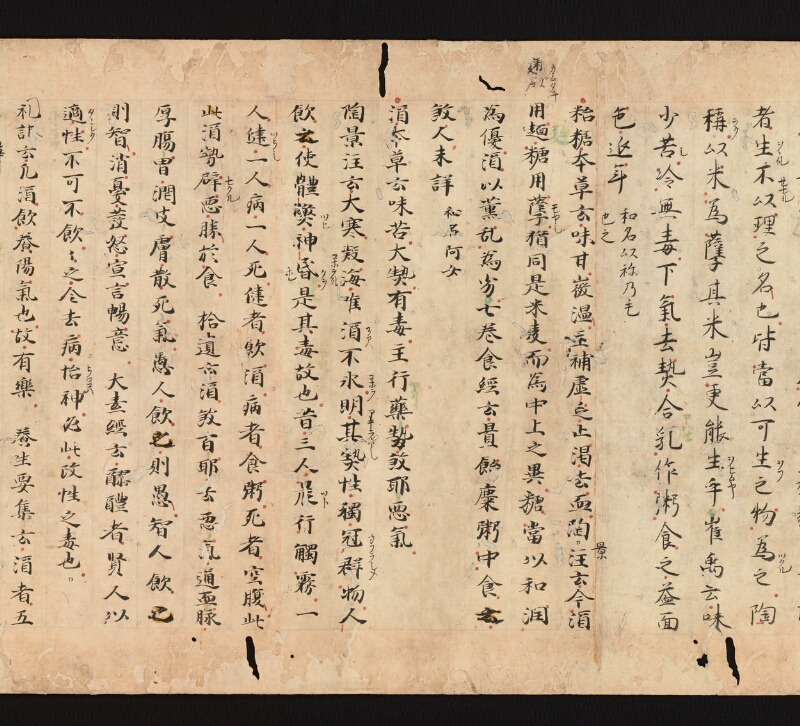 者生不以理之名也時當以可生之物為之陶
稱以米為糱其米豈更能生乎崔禹云味
少苦冷無毒下氣去熱合乳作粥食之益面
色近年 和名以祢乃毛也之
粭糖本草云味甘微温主補虛乏止渴去血陶景注云今酒
用麺糖用糱猶同是米麦而為中上之異糖當以和潤
為優酒以薫乱為劣七巻食経云置飴糜粥中食去
敦人未詳 和名阿女
酒本草云味苦大熱有毒主行藥勢敦耶惡氣
陶景注云大寒凝海唯酒不氷明其熱性獨冠群物人
飲之使體弊神昏是其毒故也昔三人晨行觸霧一
人健一人病一人死健者飲酒病者食粥死者空腹此
此酒勢辟惡勝於食 拾遺云酒敦百耶去惡氣通血脉
厚腸胃潤皮膚散死氣愚人飲之則愚智人飲之
則智消憂發怒宣言暢意 大素經云醪醴者賢人以
適性不可不飲〻之令去病怡神必此改性之毒也。
礼記云凡酒飲養陽氣也故有樂 養生要集云酒者五